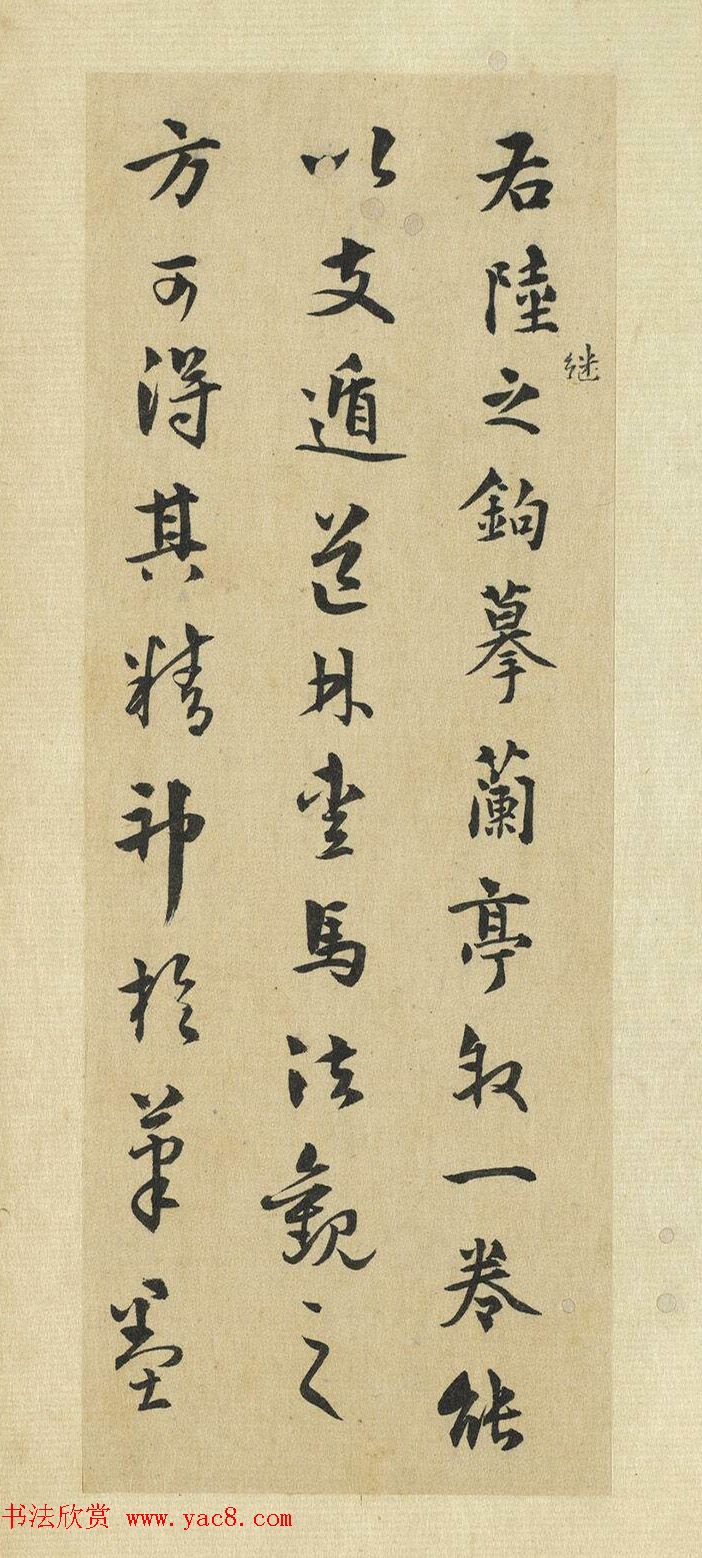 右陸继之鉤摹蘭亭叙一卷能
以支遁道林愛馬法觀之
方可得其精神於筆墨
书法欣赏 www.yac8.com